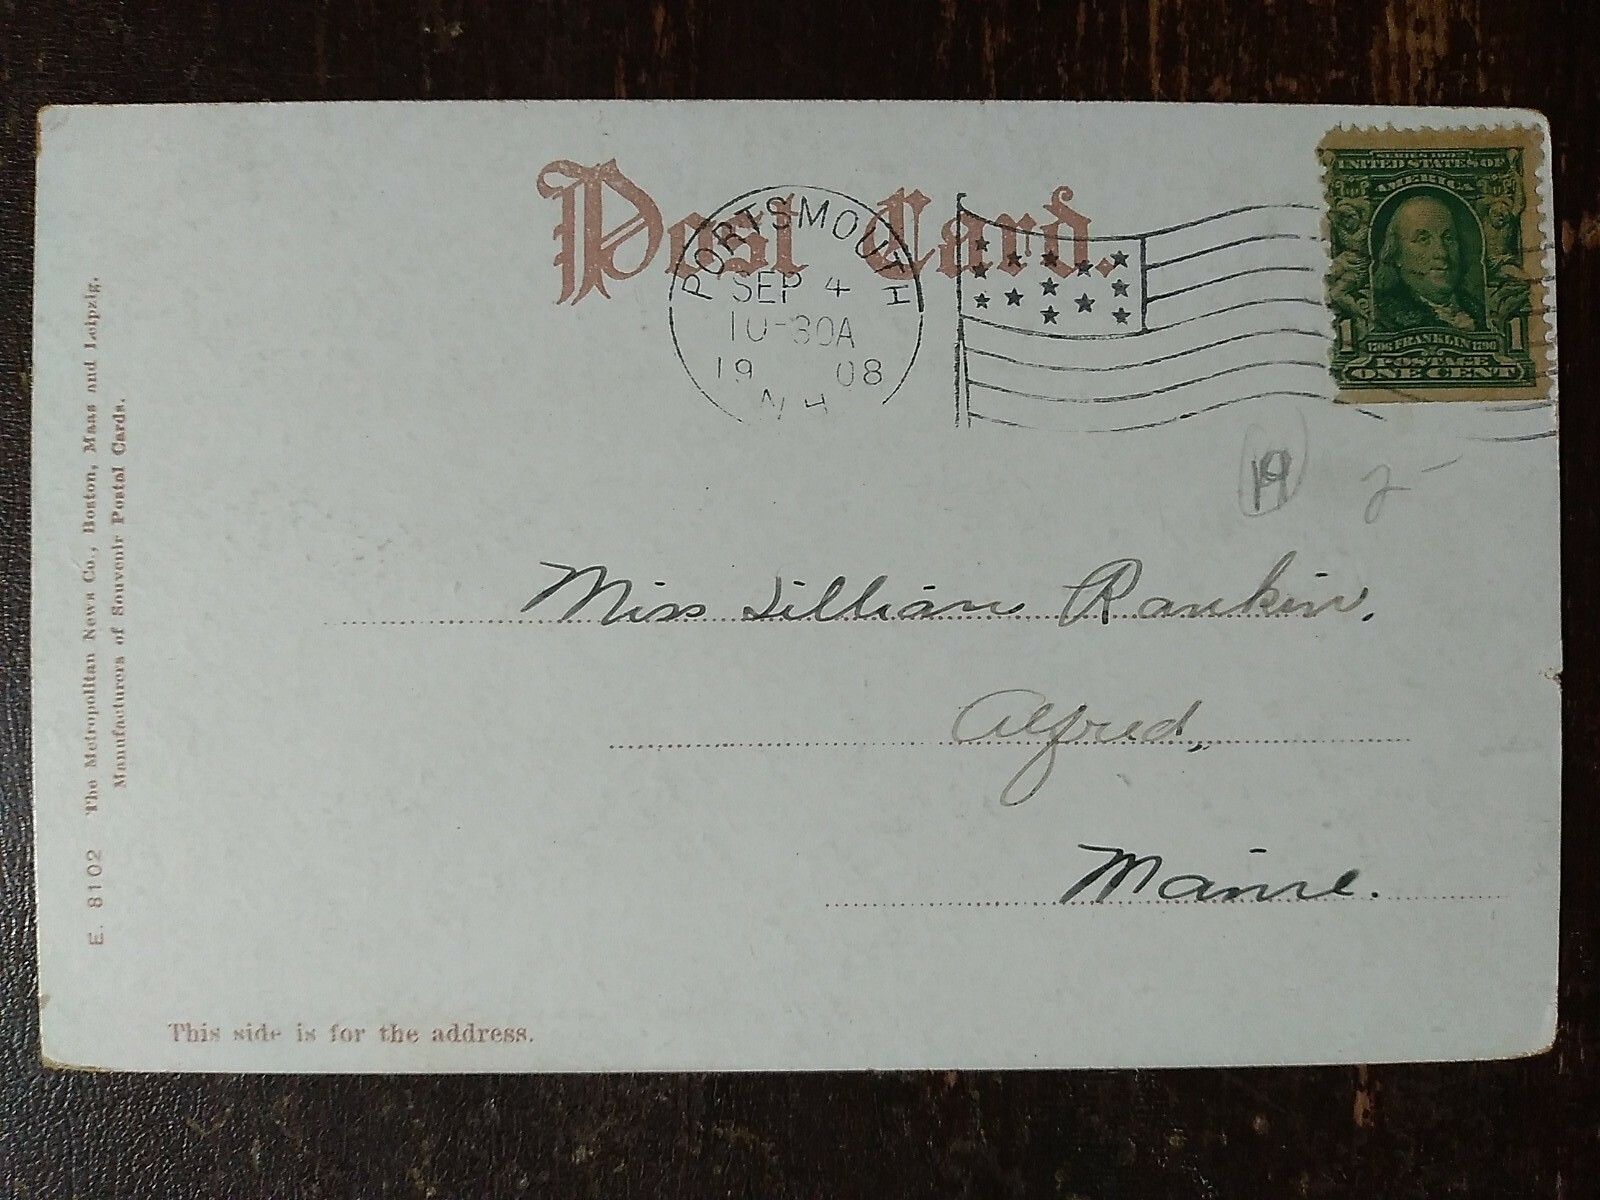 Post Card.
PORTSMOUTH
SEP 4
10-30A
19 08
N.H
SERIES 1902
UNITED STATES OF
AMERICA
1 1706 FRANKLIN 1790 1
POSTAGE
ONE CENT
19 2-
Miss Lillian Rankin,
Alfred,
Maine.
E. 8102 The Metropolitan News Co., Boston, Mass and Leipzig.
Manufacturers of Souvenir Postal Cards.
This side is for the address.